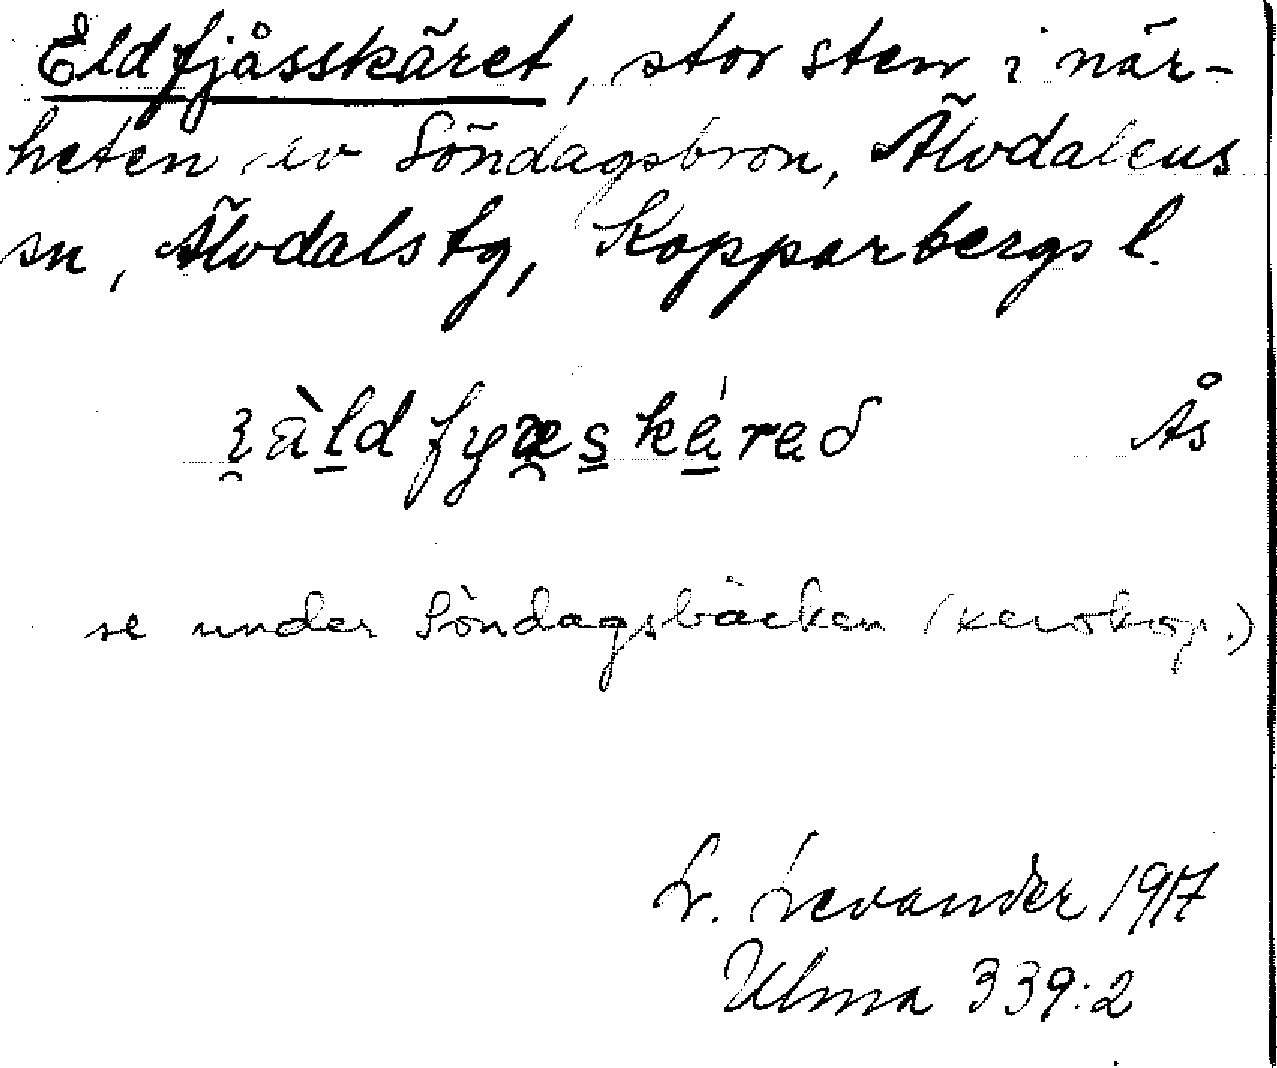 Eldfjåsskäret, stor sten i när-
heten av Söndagsbron, Älvdalens
sn, Älvdals tg, Kopparbergs l.
Ås
se under Söndagsbäcken (xerokop.)
L. Levander 1917
Ulma 339:2